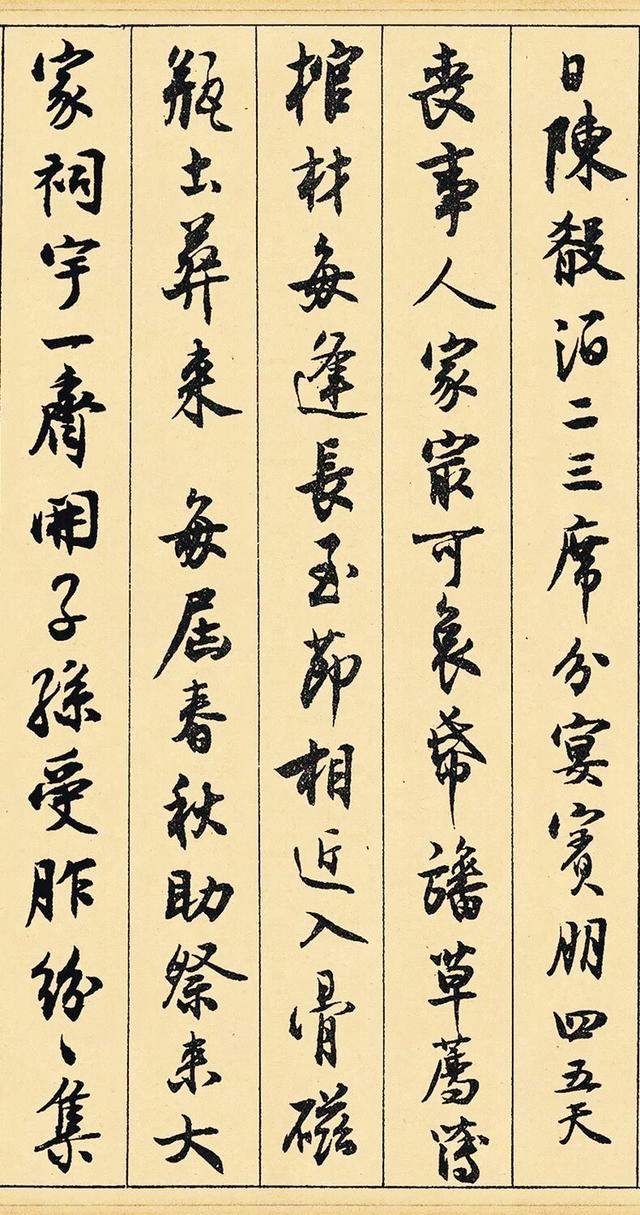 日陳殽泊二三席分宴賓朋四五天
喪事人家㝡可哀帋旛草薦薄
棺材每逢長至節相近入骨磁
瓶出葬来 每屆春秋助祭来大
家祠宇一齊開子孫受胙紛〻集